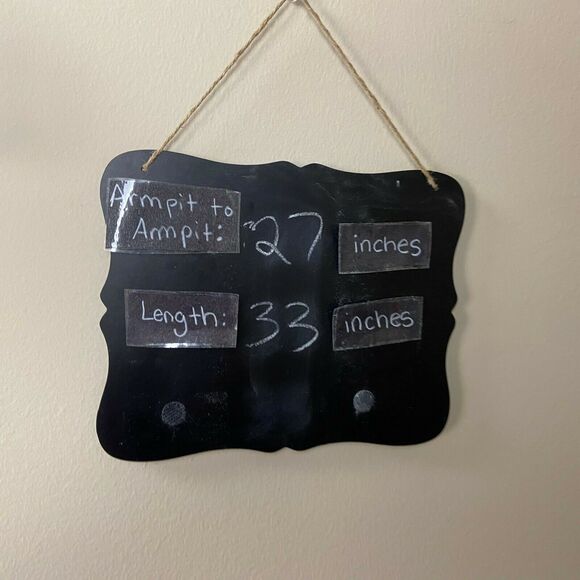 Armpit to
Armpit: 27 inches
Length: 33 inches